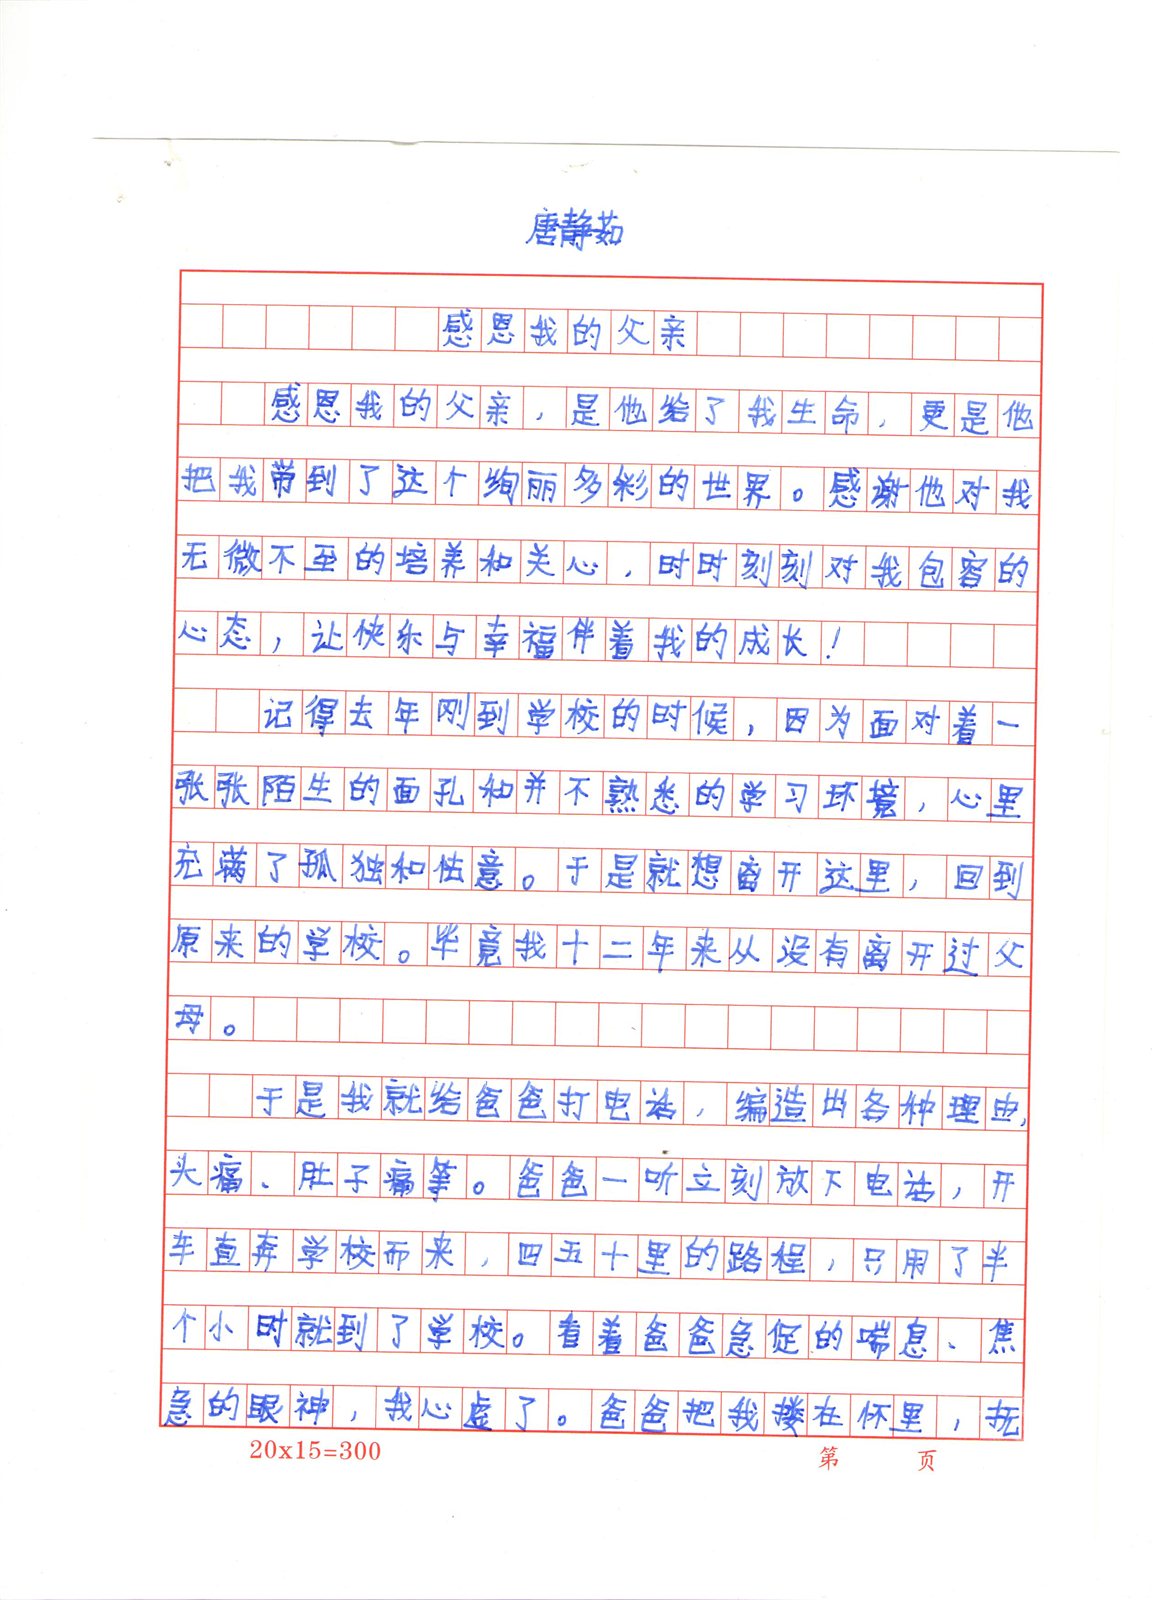 唐静茹
感恩我的父亲
感恩我的父亲，是他给了我生命，更是他
把我带到了这个绚丽多彩的世界。感谢他对我
无微不至的培养和关心，时时刻刻对我包容的
心态，让快乐与幸福伴着我的成长！
记得去年刚到学校的时候，因为面对着一
张张陌生的面孔和并不熟悉的学习环境，心里
充满了孤独和怯意。于是就想离开这里，回到
原来的学校。毕竟我十二年来从没有离开过父
母。
于是我就给爸爸打电话，编造出各种理由，
头痛、肚子痛等。爸爸一听立刻放下电话，开
车直奔学校而来，四五十里的路程，只用了半
个小时就到了学校。看着爸爸急促的喘息、焦
急的眼神，我心虚了。爸爸把我搂在怀里，抚
20x15=300
第 页